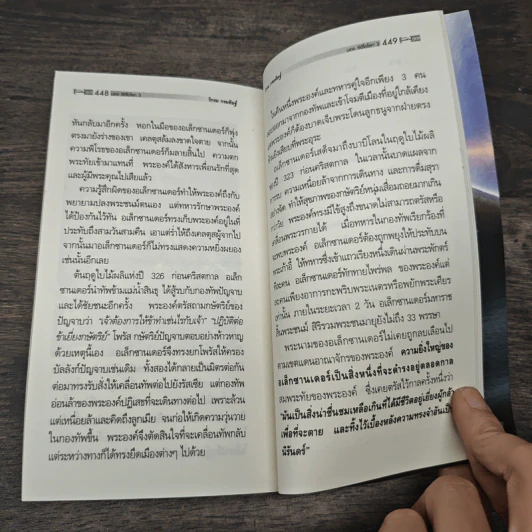 448
ทันกลับมาอีกครั้ง หอกในมือของอเล็กซานเดอร์ก็พุ่ง
ตรงมายังร่างของเขา เคลตุสล้มลงขาดใจตาย จากนั้น
ความพิโรธของอเล็กซานเดอร์ก็มลายสิ้นไป ความตก
พระทัยเข้ามาแทนที่ พระองค์ได้สังหารเพื่อนรักที่สุด
และผู้มีพระคุณไปเสียแล้ว
ความรู้สึกผิดของอเล็กซานเดอร์ทำให้พระองค์ถึงกับ
พยายามปลงพระชนม์ตนเอง แต่ทหารรักษาพระองค์
ได้ป้องกันไว้ทัน อเล็กซานเดอร์ทรงเก็บพระองค์อยู่ในที่
ประทับถึงสามวันสามคืน เอาแต่ร่ำไห้ถึงเคลตุสผู้จากไป
จากนั้นมาอเล็กซานเดอร์ก็ไม่ทรงแสดงความหยิ่งผยอง
เช่นนั้นอีกเลย
ต้นฤดูใบไม้ผลิแห่งปี 326 ก่อนคริสตกาล อเล็ก
ซานเดอร์นำทัพข้ามแม่น้ำสินธุ ได้สู้รบกับกองทัพปัญจาบ
และได้ชัยชนะอีกครั้ง พระองค์ตรัสถามกษัตริย์ของ
ปัญจาบว่า "เจ้าต้องการให้ข้าทำเช่นไรกับเจ้า" "ปฏิบัติต่อ
ข้าเยี่ยงกษัตริย์" โพรัส กษัตริย์ปัญจาบตอบอย่างห้าวหาญ
ด้วยเหตุนี้เอง อเล็กซานเดอร์จึงทรงยกโพรัสให้ครอง
บัลลังก์ปัญจาบเช่นเดิม ทั้งสองได้กลายเป็นมิตรต่อกัน
ต่อมาทรงรับสั่งให้เคลื่อนทัพต่อไปยังรัสเซีย แต่กองทัพ
อ่อนล้าของพระองค์ปฏิเสธที่จะเดินทางต่อไป เพราะล้วน
แต่เหนื่อยล้าและคิดถึงลูกเมีย จนก่อให้เกิดความวุ่นวาย
ในกองทัพขึ้น พระองค์จึงตัดสินใจที่จะเคลื่อนทัพกลับ
แต่ระหว่างทางก็ได้ทรงยึดเมืองต่างๆ ไปด้วย
449
ในคืนหนึ่งพระองค์และทหารคู่ใจอีกเพียง 3 คน
ออกมาจากกองทัพและเข้าโจมตีเมืองที่อยู่ใกล้เคียง
พระองค์ก็ต้องบาดเจ็บพระโตนลูกธนูจากฝ่ายตรง
ข้ามเสียบที่พระอุระ
อเล็กซานเดอร์เสด็จมาถึงบาบิโลนในฤดูใบไม้ผลิ
ปี 323 ก่อนคริสตกาล ในเวลานั้นบาดแผลจาก
ความเหนื่อยล้าจากการเดินทาง และการดื่มสุรา
ทำให้สุขภาพของกษัตริย์หนุ่มเสื่อมถอยมากเกิน
พระองค์ทรงมีไข้สูงถึงขนาดไม่สามารถตรัสหรือ
เคลื่อนพระวรกายได้ เมื่อทหารในกองทัพเรียกร้องที่
พบพระองค์ อเล็กซานเดอร์ต้องถูกพยุงให้ประทับบน
พระเก้าอี้ ให้ทหารซึ่งเข้าแถวเรียงหนึ่งเดินผ่านพระพักตร์
อเล็กซานเดอร์ทักทายไพร่พล ของพระองค์แต่
เพียงอาการกะพริบพระเนตรหรือพยักพระเศียร
เท่านั้น ภายในระยะเวลา 2 วัน อเล็กซานเดอร์มหาราช
สิ้นพระชนม์ สิริรวมพระชนมายุยังไม่ถึง 33 พรรษา
พระนามของอเล็กซานเดอร์ไม่เคยถูกลบเลือนไป
ตามเขตแดนอาณาจักรของพระองค์ ความยิ่งใหญ่ของ
อเล็กซานเดอร์เป็นสิ่งหนึ่งที่จะดำรงอยู่ตลอดกาล
สมพระทัยของพระองค์ ซึ่งเคยตรัสไว้กาลครั้งหนึ่งว่า
"มันเป็นสิ่งน่าชื่นชมเหลือเกินที่ได้มีชีวิตอยู่เยี่ยงผู้กล้า
เพื่อที่จะตาย และทิ้งไว้เบื้องหลังความทรงจำอันเป็น
นิรันดร์"